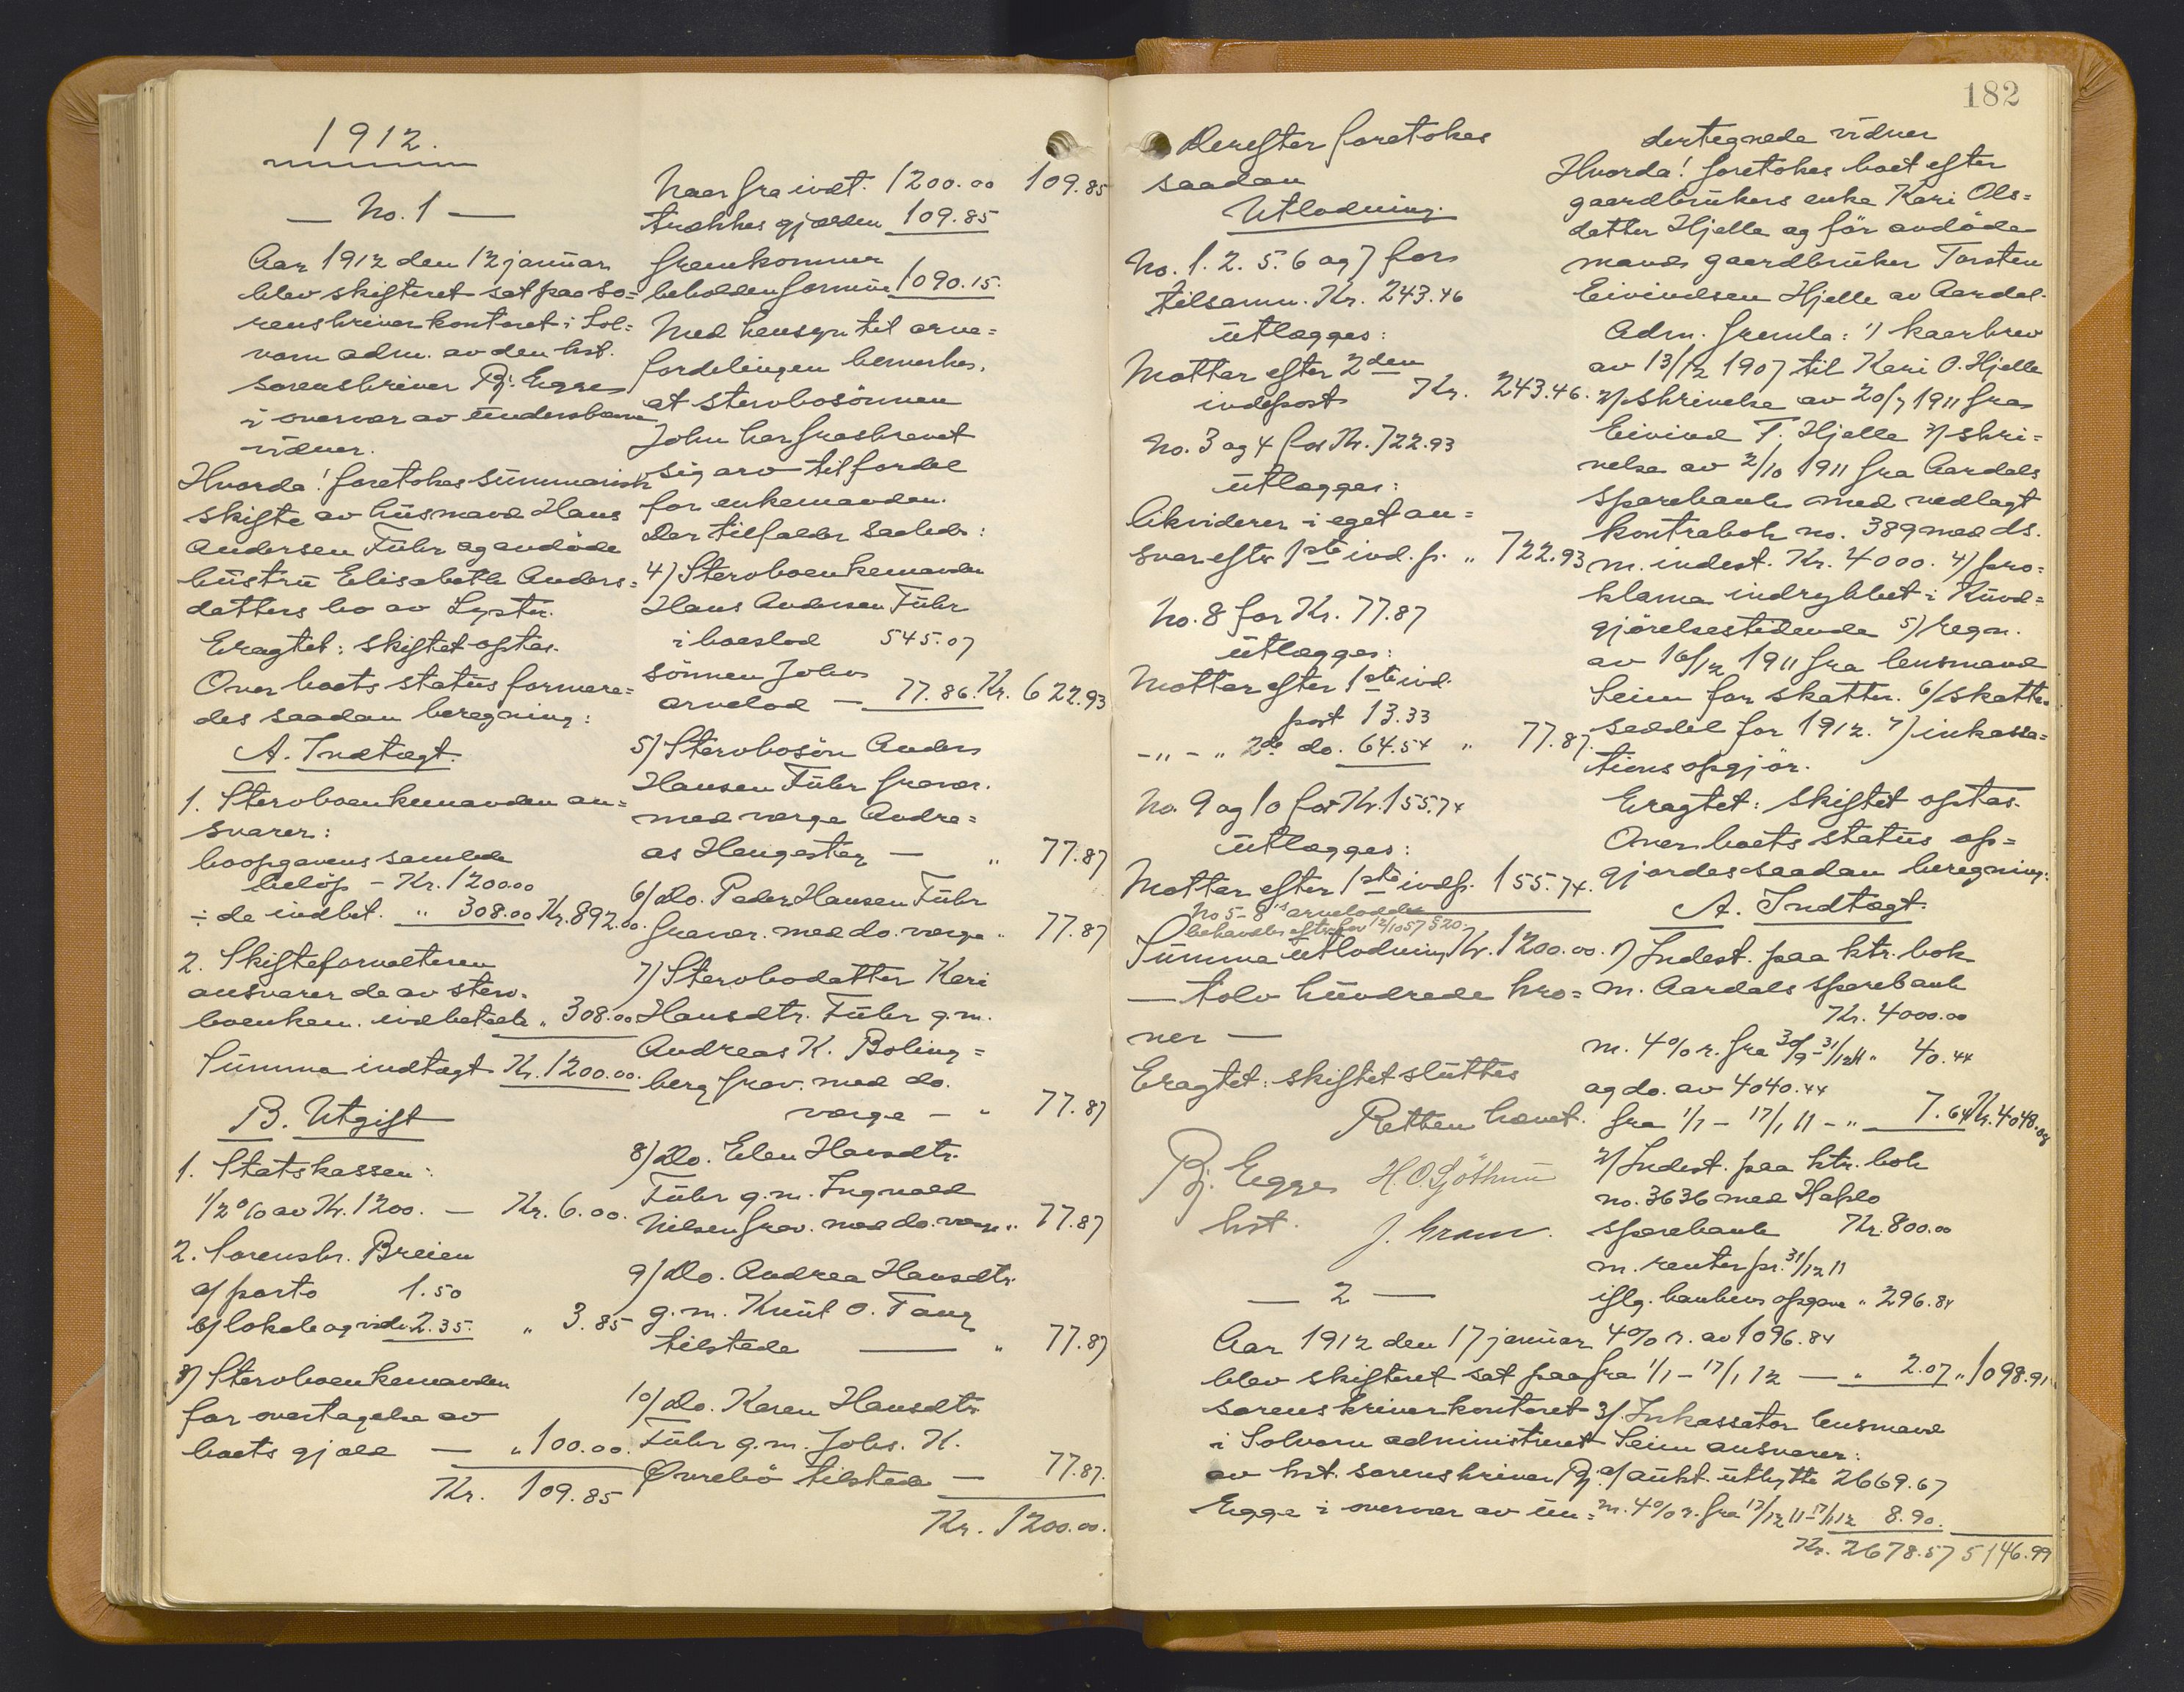 1912.
— No. 1 —
Aar 1912 den 12 januar
blev skifteret sat paa so=
renskriverkontoret i Sol=
vorn adm. av den kst.
sorenskriver Bj. Egge
i overvær av underskrevne
vidner.
Hvorda! foretokes summarisk
skifte av husmand Hans
Andersen Fuhr og avdöde
hustru Elisabeth Anders=
datters bo av Lyster.
Eragtet: skiftet optas.
Over boets status formere=
des saadan beregning:
A. Indtægt.
1. Stervboenkemanden an=
svarer:
boopgavens samlede
belöp - Kr. 1200.00
÷ de indbet. " 308.00 Kr. 892.00.
2. Skifteforvalteren
ansvarer de av sterv-
boenkem. indbetalte " 308.00
Summa indtægt Kr. 1200.00.
B. Utgift
1. Statskassen:
1/2 % av Kr. 1200. — Kr. 6.00.
2. Sorenskr. Breien
a/ porto 1.50
b/ lokale og vidn. 2.35. " 3.85
3) Stervboenkemanden
for overtagelse av
boets gjæld — " 100.00.
Kr. 109.85
109.85
Naar fra indt. 1200.00
trækkes gjælden 109.85
fremkommer
beholden formue 1090.15.
Med hensyn til arve=
fordelingen bemerkes,
at stervbosönnen
John har fraskrevet
sig arv til fordel
for enkemanden.
Der tilfalder saaledes:
4) Stervboenkemanden
Hans Andersen Fuhr
i boeslod 545.07
sönnen Johns
arvelod — 77.86. Kr. 622.93
5) Stervbosön Anders
Hansen Fuhr fravær.
med værge Andre=
as Haugestøg — " 77.87
6) Do. Peder Hansen Fuhr
fravær. med do. værge " 77.87
7) Stervbodatter Kari
Hansdtr. Fuhr g.m.
Andreas K. Boling=
berg frav. med do.
værge — " 77.87
8) Do. Elen Hansdtr.
Fuhr g.m. Ingvald
Nilsen frav. med do. værge " 77.87
9) Do. Andrea Hansdtr.
g.m. Knut O. Fang
tilstede — " 77.87
10) Do. Karen Hansdtr.
Fuhr g.m. Johs. K.
Øvrebö tilstede — 77.87.
Kr. 1200.00.
182
Derefter foretokes
saadan
Utlodning.
No. 1. 2. 5. 6 og 7 for
tilsamm. Kr. 243.46
utlægges:
Mottar efter 2den
indpost Kr. 243.46.
No. 3 og 4 for Kr. 722.93
utlægges:
likviderer i eget an=
svar efter 1ste ind.p. " 722.93
No. 8 for Kr. 77.87
utlægges:
Mottar efter 1ste ind.
post 13.33
-"- " 2de do. 64.54 " 77.87.
No. 9 og 10 for Kr. 155.74
utlægges:
Mottar efter 1ste indp. 155.74.
No 5-8's arvelodder
behandles efter lov 12/10 57 § 20.
Summa utlodning Kr. 1200.00.
— tolv hundrede kro=
ner —
Eragtet: skiftet sluttes
Retten hævet.
Bj. Egge H. O. Sjöthun
kst. J. Gram.
— 2 —
Aar 1912 den 17 januar
blev skifteret sat paa
sorenskriverkontoret
i Solvorn administreret
av kst. sorenskriver Bj.
Egge i overvær av un=
dertegnede vidner
Hvorda! foretokes boet efter
gaardbrukers enke Kari Ols=
datter Hjelle og för avdöde
mands gaardbruker Torsten
Eivindsen Hjelle av Aardal.
Adm. fremla: 1) kaarbrev
av 13/12 1907 til Kari O. Hjelle
2) skrivelse av 20/7 1911 fra
Eivind T. Hjelle 3) skri=
velse av 2/10 1911 fra Aardals
Sparebank med vedlagt
kontrabok no. 389 med ds.
m. indest. Kr. 4000. 4) pro=
klama indrykket i Kund=
gjörelsestidende 5) regn.
av 16/12 1911 fra lensmand
Seim for skatter. 6) skatte=
seddel for 1912. 7) inkassa=
tionsopgjör.
Eragtet: skiftet optas.
Over boets status op=
gjordes saadan beregning:
A. Indtægt.
1) Indest. paa ktr. bok
m. Aardals sparebank
Kr. 4000.00
m. 4 % r. fra 30/9-31/12 11 " 40.44
og do. av 4040.44
fra 1/1 - 17/1 11 - " 7.64 Kr. 4048.08
2) Indest. paa ktr. bok
no. 3636 med Hafslo
sparebank Kr. 800.00
m. renter pr. 31/12 11
iflg. bankens opgave " 296.84
4 % r. av 1096.84
fra 1/1 - 17/1 12 — " 2.07 " 1098.91
3) Inkassator lensmand
Seim ansvarer:
a) aukt. utbytte 2669.67
m. 4 % r. fra 17/12 11-17/1 12 8.90.
Kr. 2678.57 5146.99